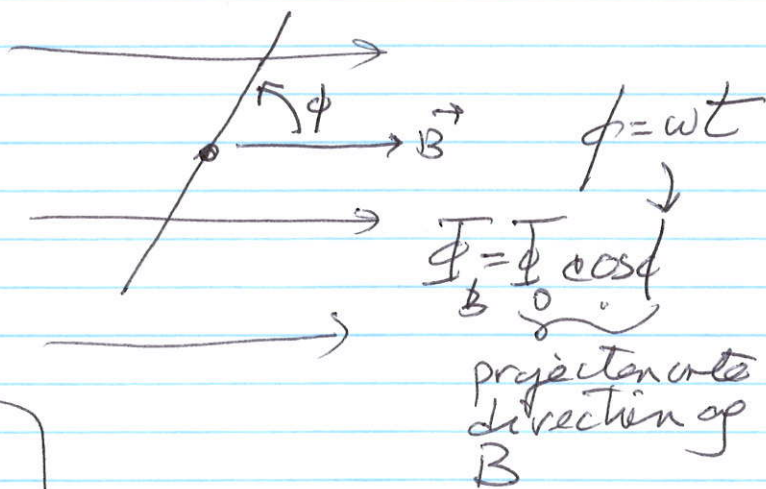 ϕ
B⃗
ϕ = ωt
Φ_B = Φ_0 cosϕ
projection onto
direction of
B